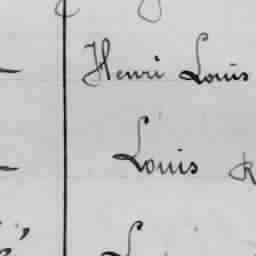 Henri Louis
Louis